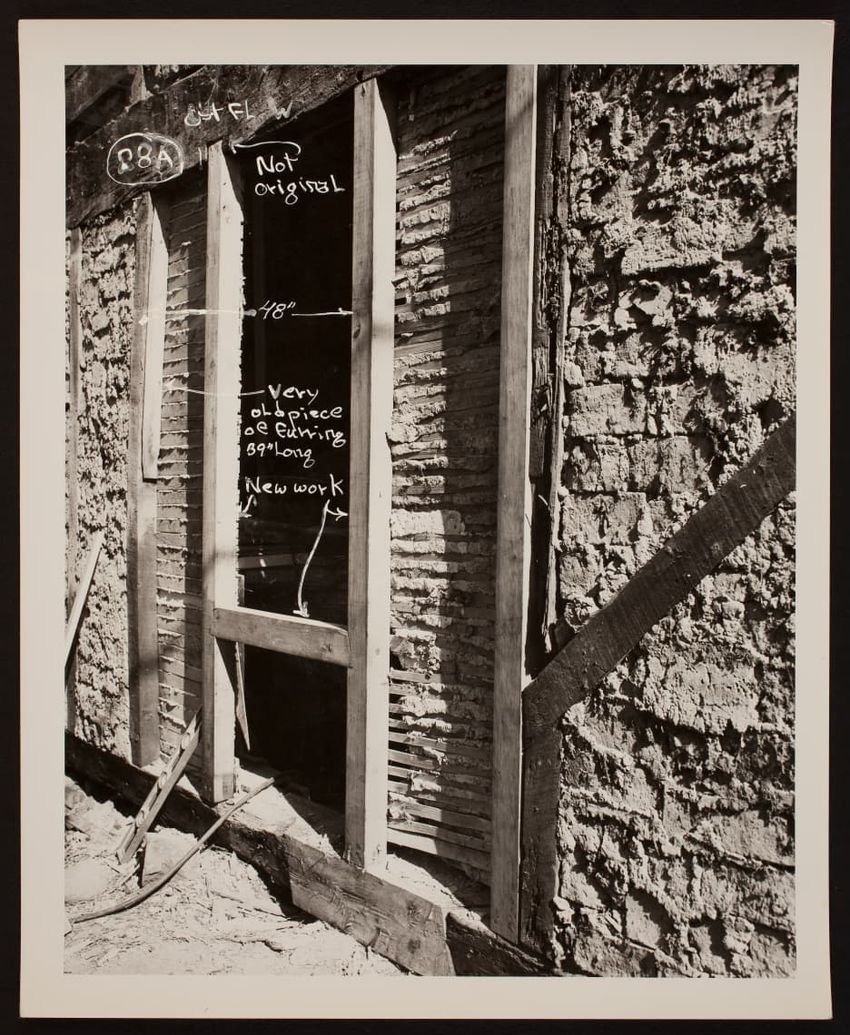 Cut FL W
88A
Not
original
48"
Very
old piece
of furring
39" Long
New work